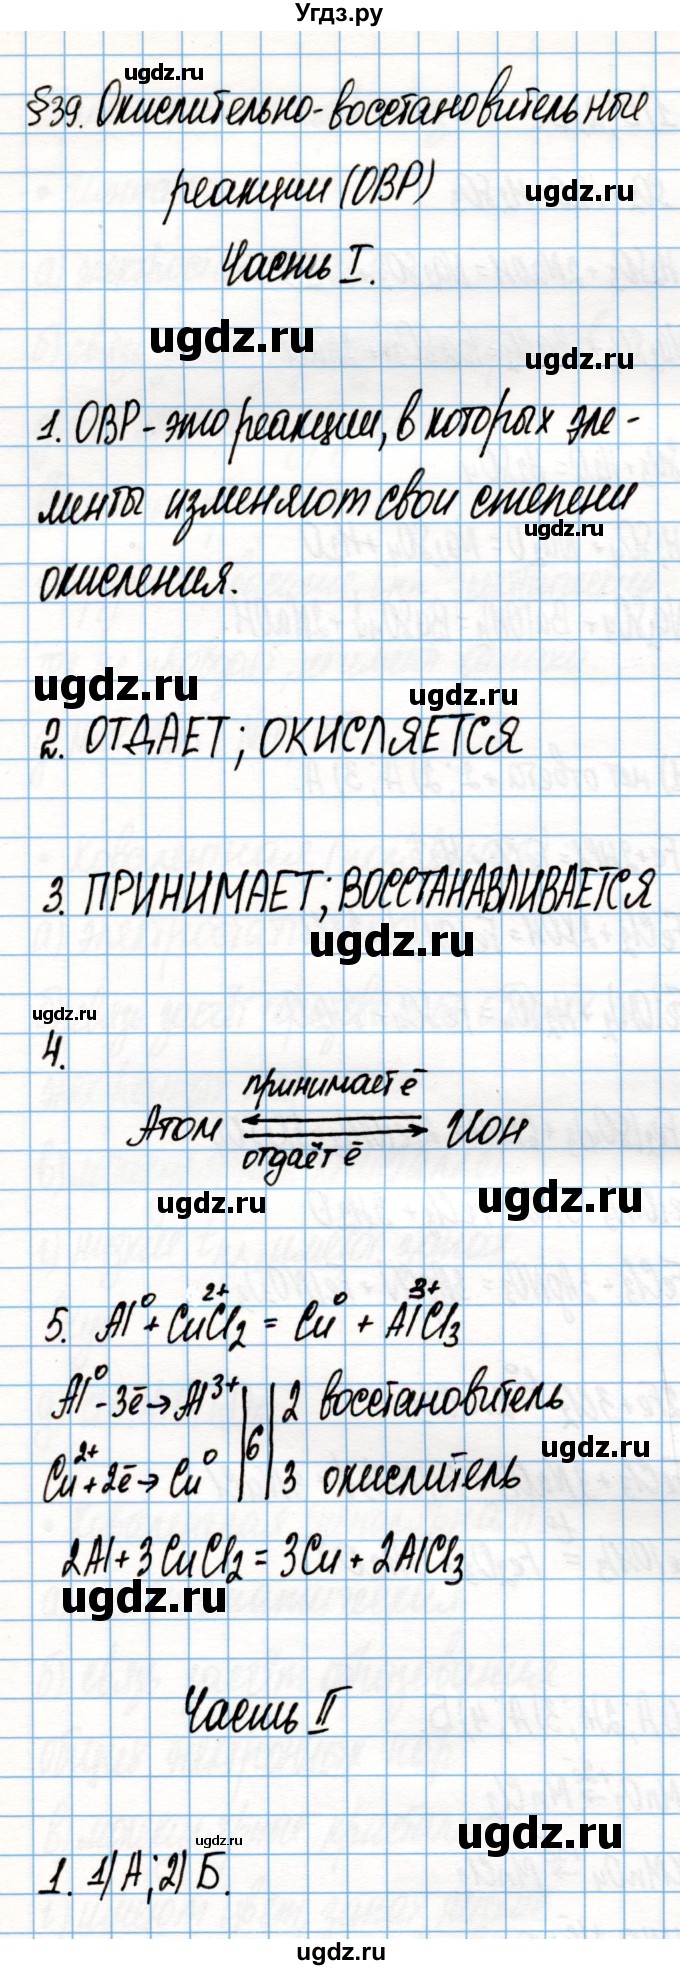 Угдз.ру
ugdz.ru
§39. Окислительно-восстановительные
реакции (ОВР)
ugdz.ru
Часть I.
ugdz.ru
ugdz.ru
1. ОВР - это реакции, в которых эле-
менты изменяют свои степени
ugdz.ru
окисления.
ugdz.ru
ugdz.ru
2. ОТДАЕТ; ОКИСЛЯЕТСЯ
3. ПРИНИМАЕТ; ВОССТАНАВЛИВАЕТСЯ
ugdz.ru
ugdz.ru
4.
принимает ē
Атом ⇄ Ион
отдаёт ē
ugdz.ru
ugdz.ru
5. Al⁰ + Cu²⁺Cl₂ = Cu⁰ + Al³⁺Cl₃
Al⁰ - 3ē → Al³⁺ | 6 | 2 восстановитель
ugdz.ru
Cu²⁺ + 2ē → Cu⁰ | | 3 окислитель
2Al + 3CuCl₂ = 3Cu + 2AlCl₃
ugdz.ru
Часть II
ugdz.ru
ugdz.ru
1. 1) А; 2) Б.
ugdz.ru